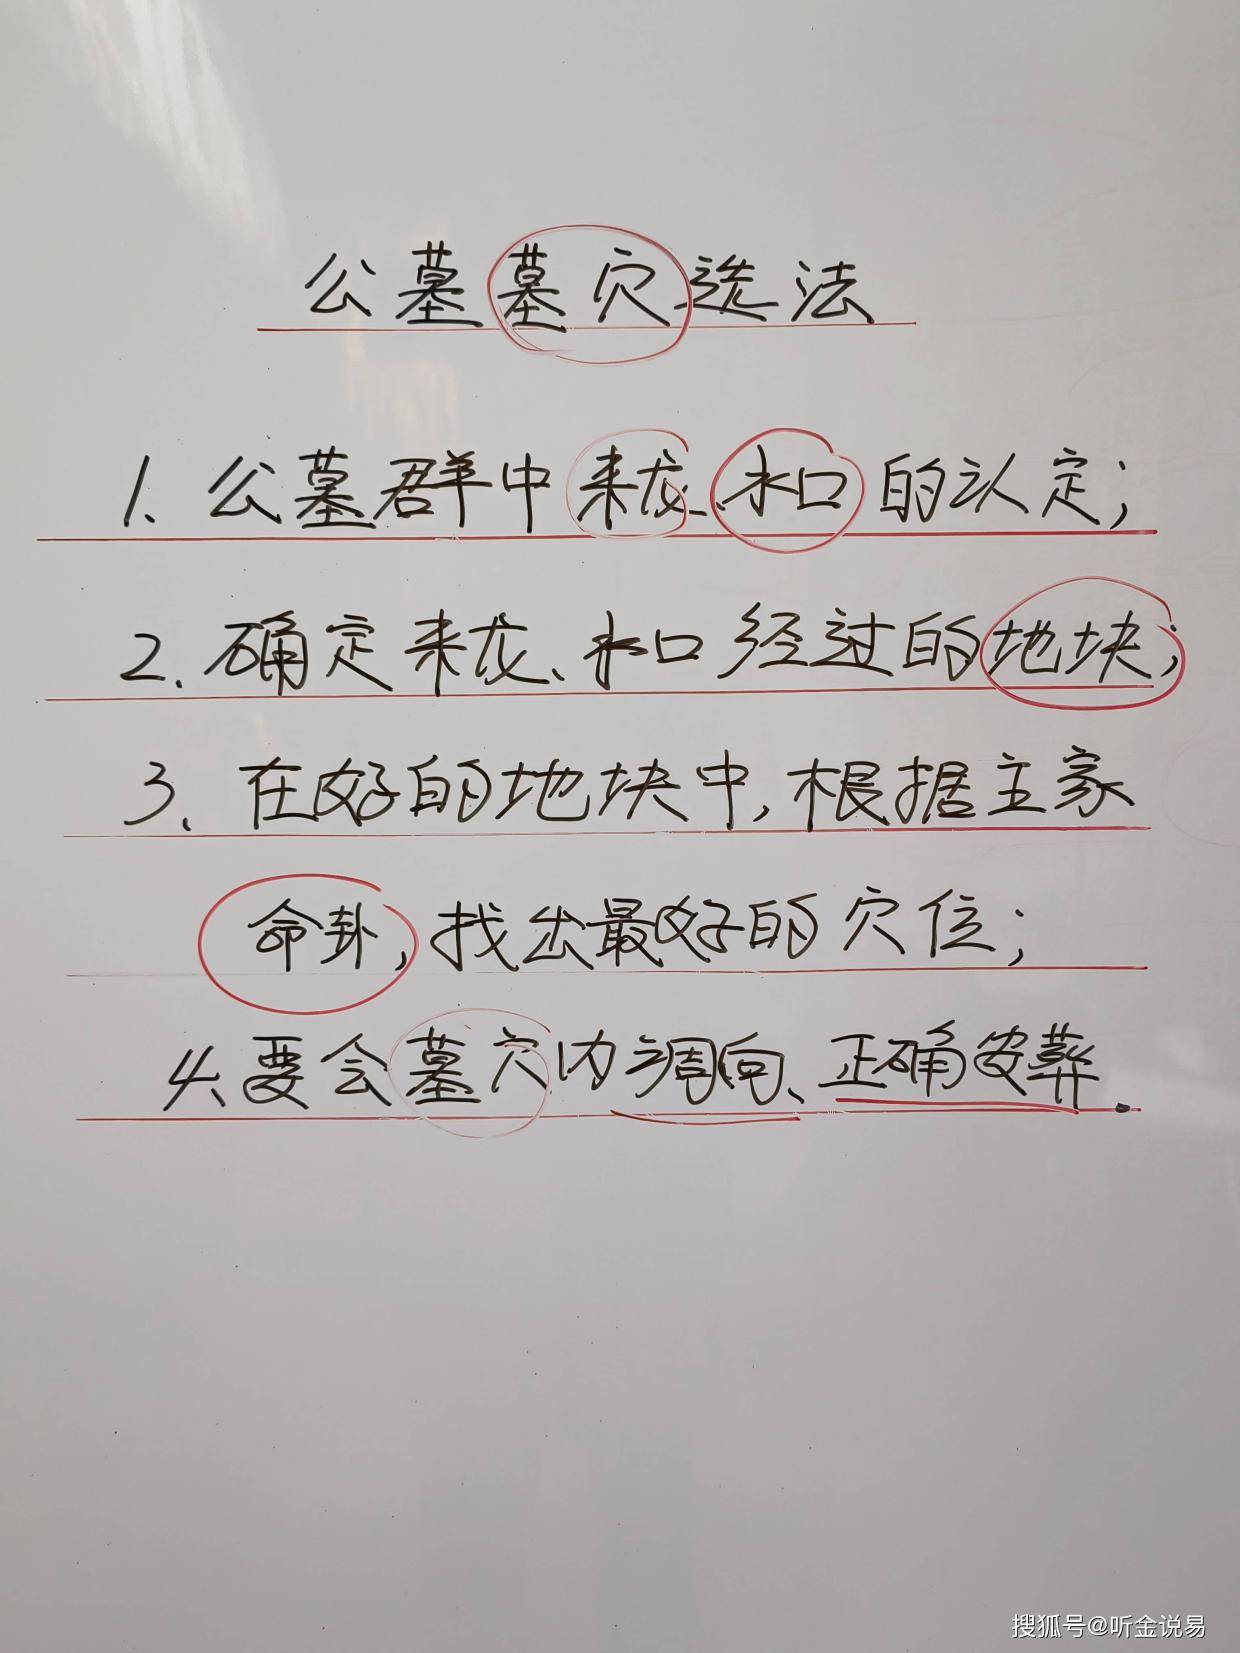 公墓墓穴选法
1. 公墓群中来龙、水口的认定；
2. 确定来龙、水口经过的地块；
3. 在好的地块中，根据主家
命卦，找出最好的穴位；
4. 要会墓穴内调向、正确安葬.
搜狐号@听金说易